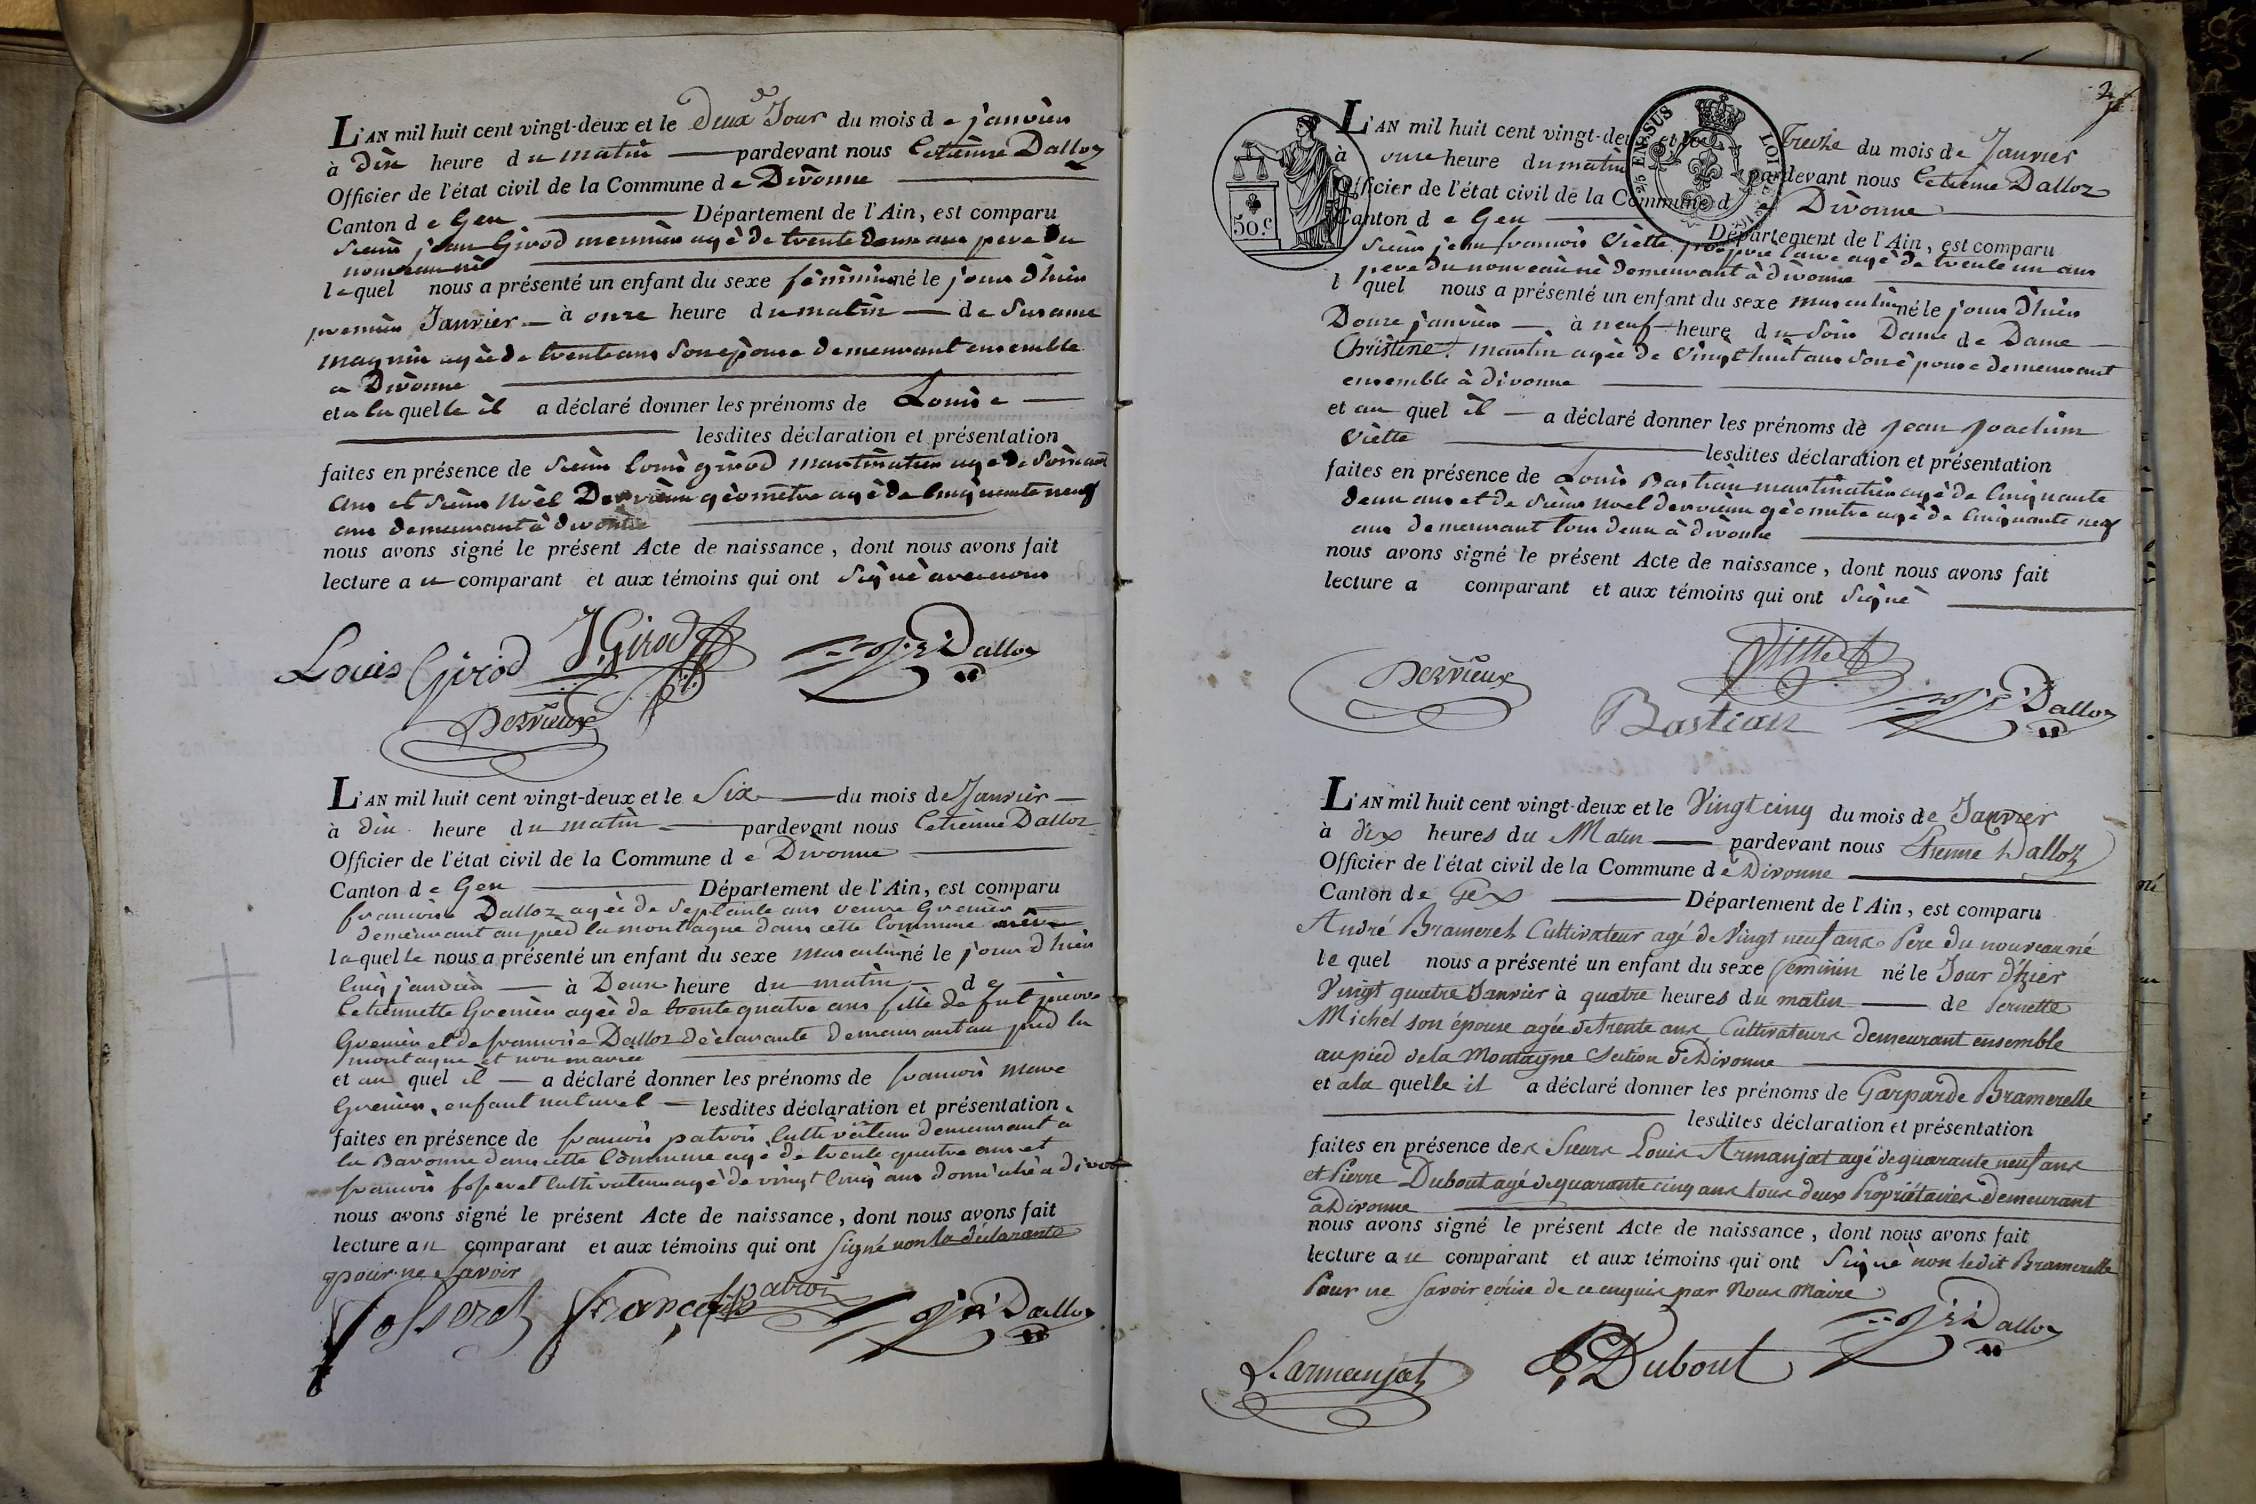 L'AN mil huit cent vingt-deux et le deux Jour du mois de janvier
à dix heure du matin pardevant nous Cetienne Dalloz
Officier de l'état civil de la Commune de Divonne
Canton de Gex Département de l'Ain, est comparu
Sieur jean Girod agé de trente deux ans pere du
nouveau né
lequel nous a présenté un enfant du sexe féminin né le jour d'hier
premier Janvier à onze heure du matin de Susanne
magnin agée de trente ans son épouse demeurant ensemble
a Divonne
et a laquelle il a déclaré donner les prénoms de Louise
lesdites déclaration et présentation
faites en présence de Sieur Louis girod agé de soixante
ans et Sieur Noël Dervieux géomêtre agé de cinquante neuf
ans demeurant à divonne
nous avons signé le présent Acte de naissance, dont nous avons fait
lecture au comparant et aux témoins qui ont signé avec nous
Louis Girod J. Girod Dalloz
Dervieux
L'AN mil huit cent vingt-deux et le Six du mois de Janvier
à dix heure du matin pardevant nous Cetienne Dalloz
Officier de l'état civil de la Commune de Divonne
Canton de Gex Département de l'Ain, est comparu
françoise Dalloz agée de septante ans veuve Grenier
demeurant au pied la montagne dans cette Commune
laquelle nous a présenté un enfant du sexe masculin né le jour d'hier
cinq janvier à Deux heure du matin de
Cetiennette Grenier agée de trente quatre ans fille de fut pierre
Grenier et de françoise Dalloz déclarante demeurant au pied la
montagne et non mariée
et au quel il a déclaré donner les prénoms de françois marc
Grenier, enfant naturel lesdites déclaration et présentation
faites en présence de françois patroix cultivateur demeurant a
la Baronne dans cette Commune agé de trente quatre ans et
françois fosseret cultivateur agé de vingt cinq ans domicilié a divonne
nous avons signé le présent Acte de naissance, dont nous avons fait
lecture au comparant et aux témoins qui ont signé non la déclarante
pour ne savoir
fosseret françois patroi Dalloz
2
50.c
25 EN SUS LOI
L'AN mil huit cent vingt-deux et le Treize du mois de Janvier
à onze heure du matin pardevant nous Cetienne Dalloz
Officier de l'état civil de la Commune de Divonne
Canton de Gex Département de l'Ain, est comparu
Sieur jean françois Viette agé de trente un ans
pere du nouveau né demeurant à divonne
l quel nous a présenté un enfant du sexe masculin né le jour d'hier
Douze janvier à neuf heure du Soir Dame de Dame
Christine martin agée de vingt huit ans son épouse demeurant
ensemble à divonne
et au quel il a déclaré donner les prénoms de jean joachim
Viette
lesdites déclaration et présentation
faites en présence de Louis Bastian agé de cinquante
deux ans et de Sieur Noel dervieux géomêtre agé de cinquante neuf
ans demeurant tous deux à divonne
nous avons signé le présent Acte de naissance, dont nous avons fait
lecture a comparant et aux témoins qui ont signé
Dervieux
Bastian Dalloz
L'AN mil huit cent vingt-deux et le Vingt cinq du mois de Janvier
à dix heures du Matin pardevant nous Etienne Dalloz
Officier de l'état civil de la Commune de Divonne
Canton de Gex Département de l'Ain, est comparu
André Brameret Cultivateur agé de Vingt neuf ans Pere du nouveau né
le quel nous a présenté un enfant du sexe feminin né le Jour d'hier
Vingt quatre Janvier à quatre heures du matin de Pernette
Michel son épouse agée de trente ans Cultivateurs demeurant ensemble
au pied de la Montagne Section de Divonne
et a la quelle il a déclaré donner les prénoms de Gasparde Bramerelle
lesdites déclaration et présentation
faites en présence des Sieurs Louis Armanjat agé de quarante neuf ans
et Pierre Dubout agé de quarante cinq ans tous deux Propriétaires demeurant
à Divonne
nous avons signé le présent Acte de naissance, dont nous avons fait
lecture au comparant et aux témoins qui ont Signé non ledit Bramerelle
Pour ne Savoir écrire de ce enquis par Nous Maire
L. armanjat P. Dubout Dalloz